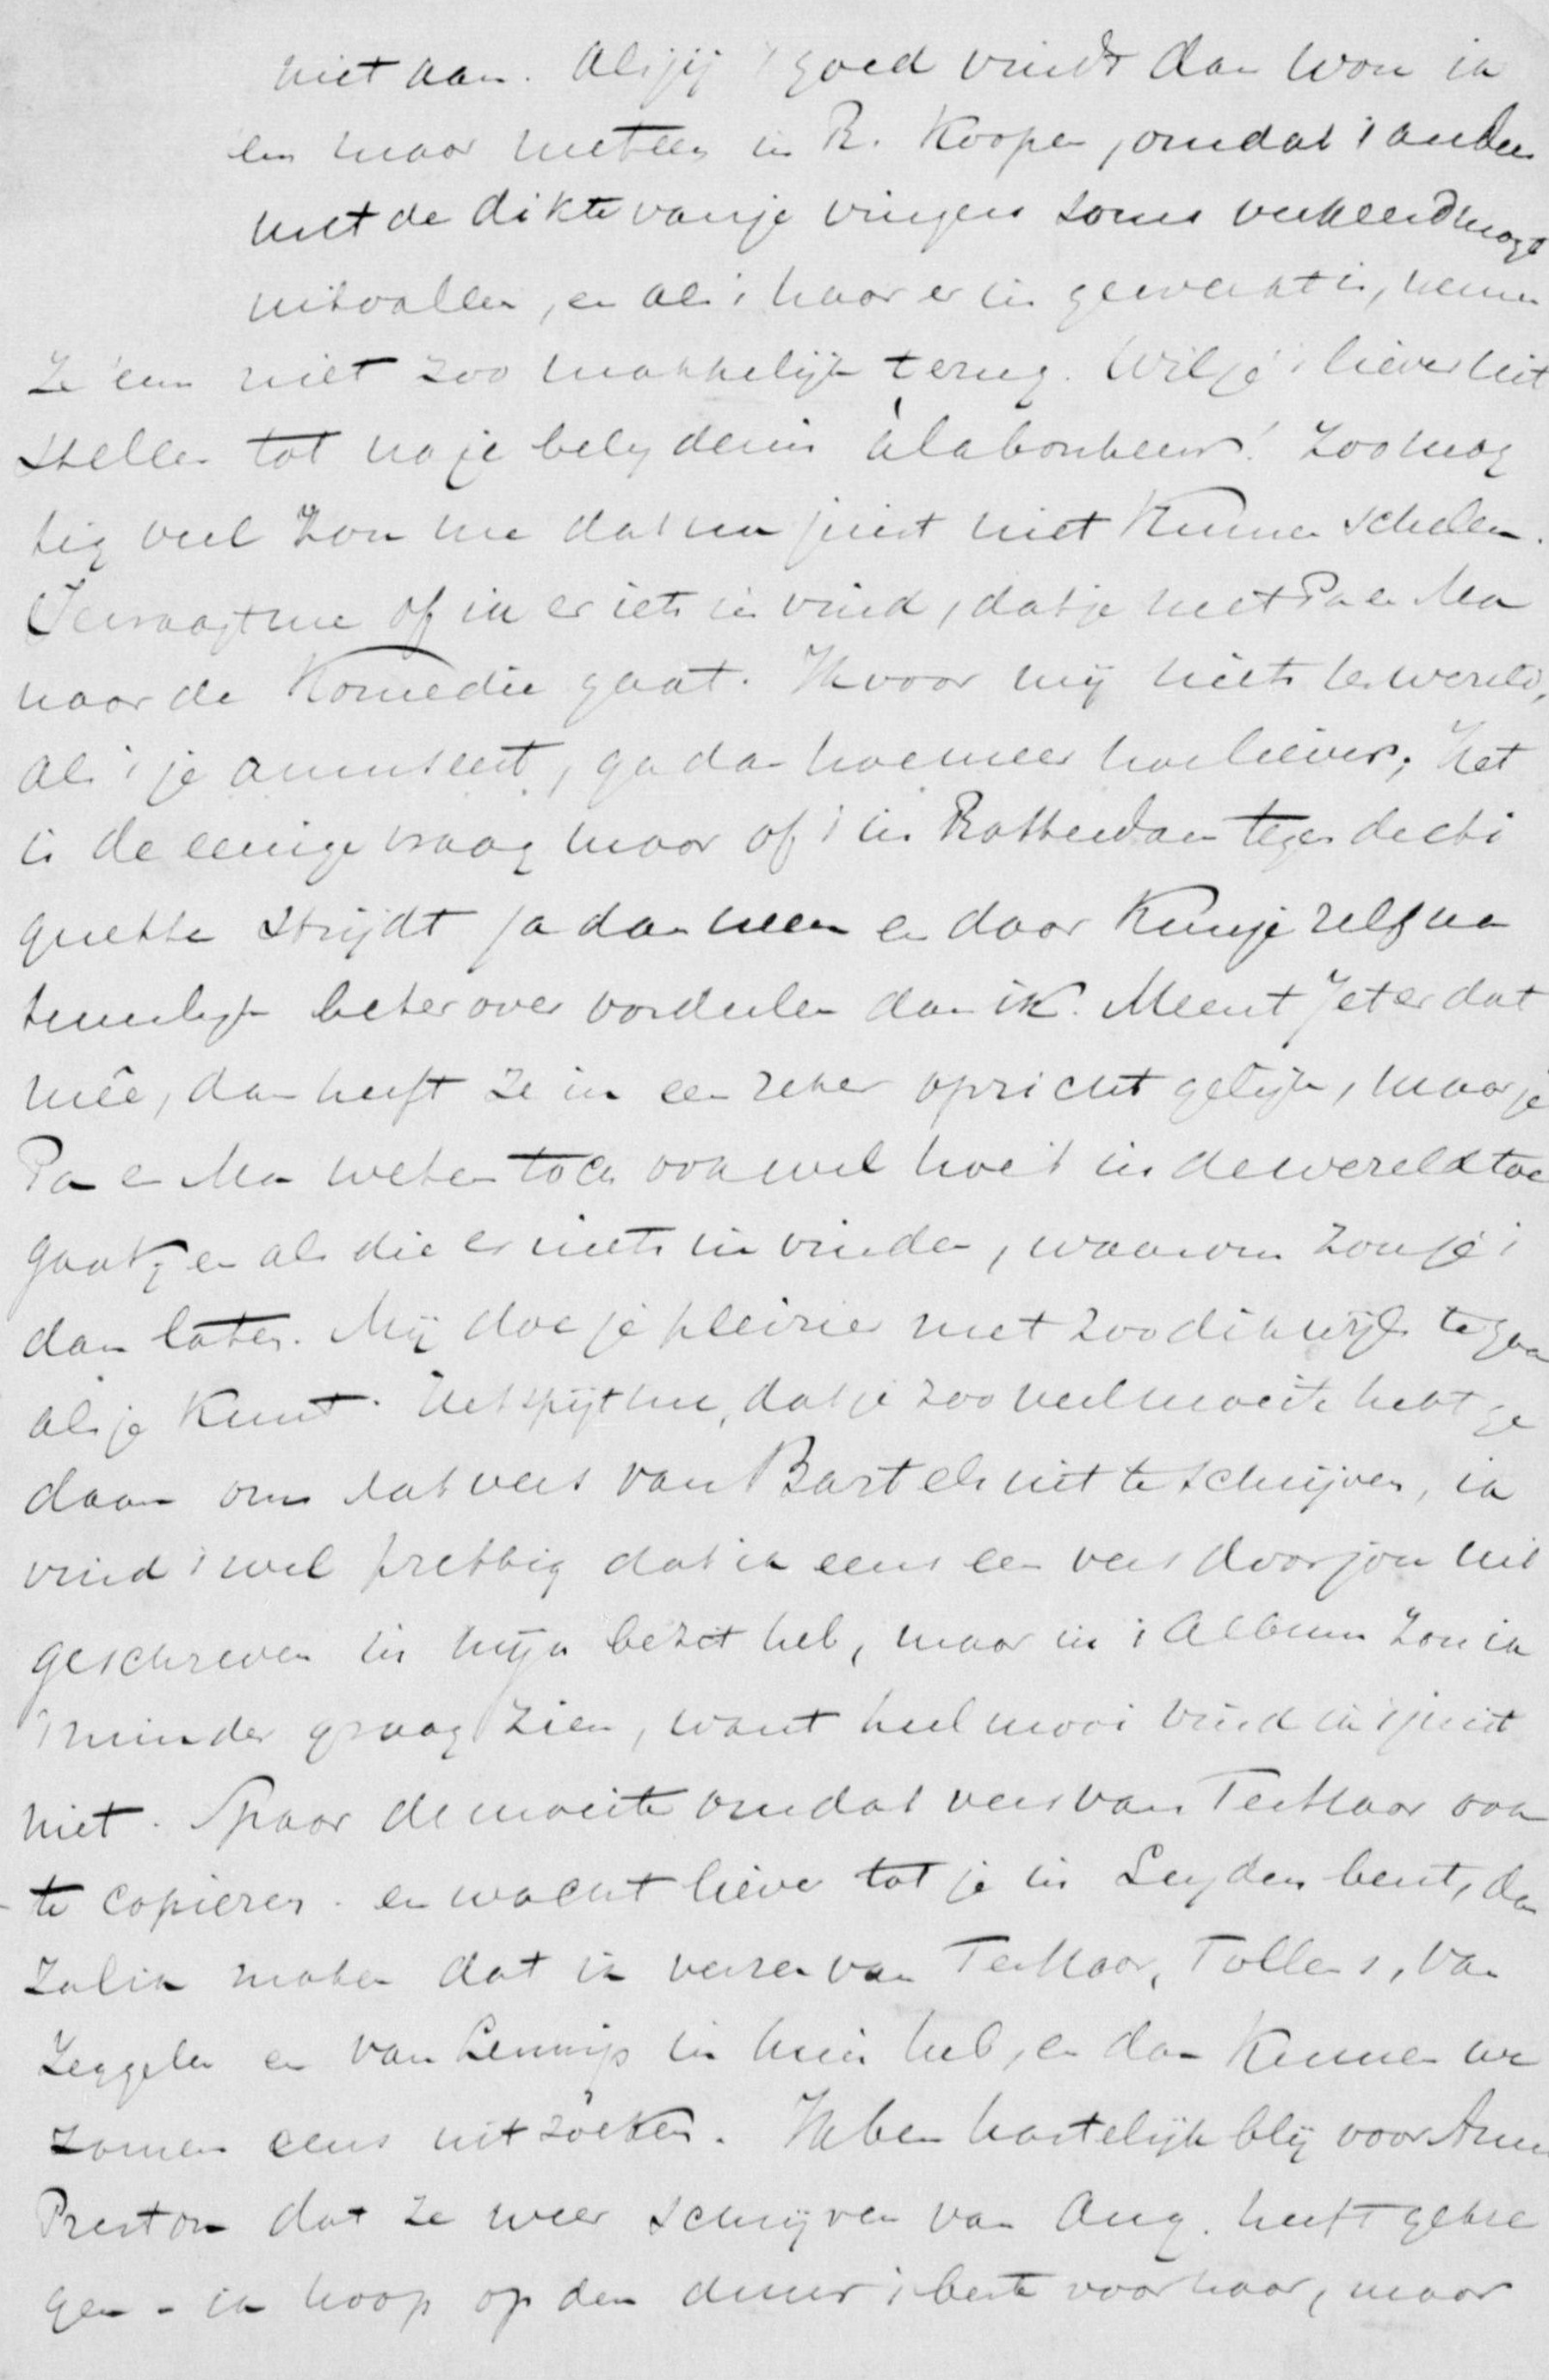 niet aan. Als jij 't goed vindt dan wou ik
'em maar meteen in R. Koopen, omdat 't anders
met de dikte van je vingers soms verkeerd mogt
uitvallen, en als 't haar er in gewerkt is, nemen
ze 'em niet zoo makkelijk terug. Wil je 't liever uit
stellen tot na je belydenis à la bonheur! Zoo mag
tig veel zou me dat nu juist niet Kunnen schelen.
Je vraagt me of ik er iets in vind, dat je met Pa en Ma
naar de Komedie gaat. Ik voor mij niets ter wereld,
als 't je amuseert, ga dan hoe meer hoe liever; Het
is de eenige vraag maar of 't in Rotterdam tegen d'eti
quette strijdt ja dan neen en daar Kun je zelf na
tuurlijk beter over oordeelen dan ik. Meent Jet er dat
meê, dan heeft ze in een zeker opzicht gelijk, maar je
Pa en Ma weten toch ook wel hoe 't in de wereld toe
gaat, en als die er niets in vinden, waarom zou je 't
dan laten. Mij doe je pleizier met zoo dikwijls te gaan
als je Kunt. Het spijt me, dat je zoo veel moeite hebt ge
daan om dat vers van Bartels uit te schrijven, ik
vind 't wel prettig dat ik eens een vers door jou uit
geschreven in mijn bezit heb, maar in 't Album zou ik
't minder graag zien, want heel mooi vind ik 't juist
niet. Spaar de moeite om dat vers van Ter Haar ook
te copieren. en wacht liever tot je in Leyden bent, dan
zal ik maken dat ik verzen van Ter Haar, Tollens, van
Zeggelen en van Lennep in huis heb, en dan Kunnen we
zamen eens uitzoeken. Ik ben hartelijk blij voor Ann
Preston dat ze weer schrijven van Aug. heeft gekre
gen - ik hoop op den duur 't beste voor haar, maar